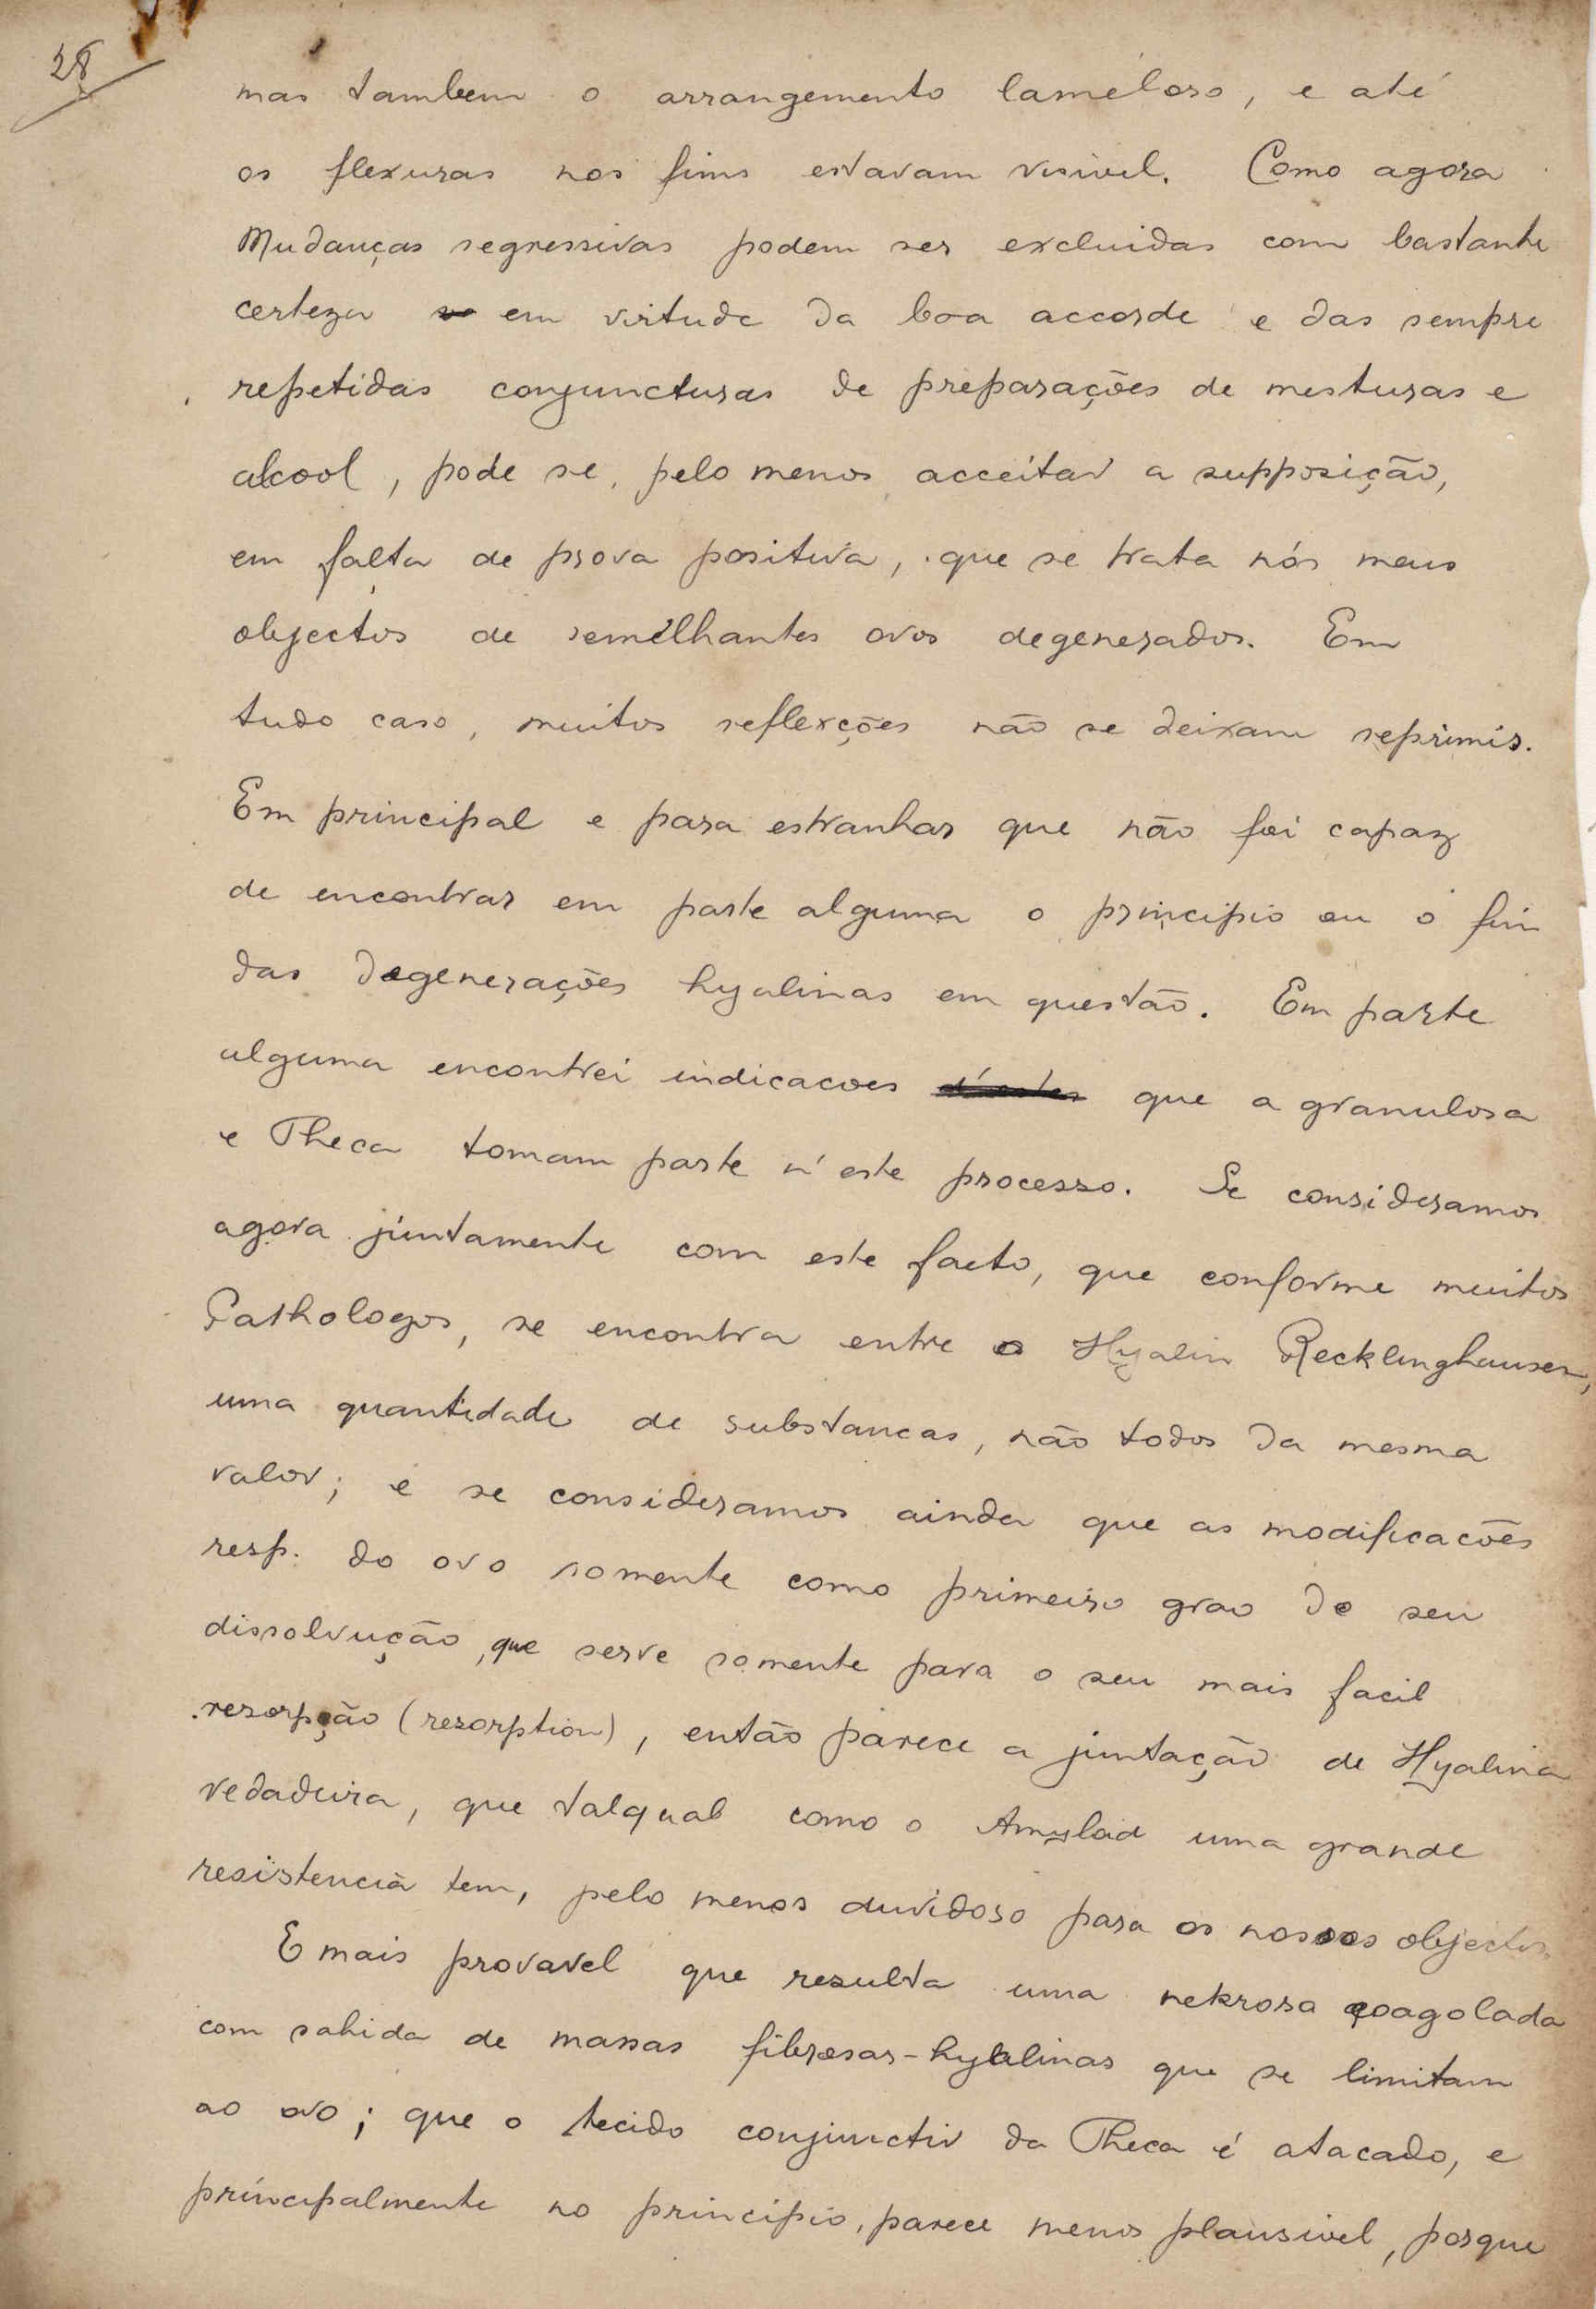 28
mas tambem o arrangemento laméloso, e até
os flexuras nos fims estavam visivel. Como agora
Mudanças regressivas podem ser excluidas com bastante
certeza em virtude da boa accorde e das sempre
repetidas conjuncturas de preparações de misturas e
alcool, pode se, pelo menos, acceitar a supposição,
em falta de prova positiva, que se trata nós meus
objectos de semélhantes ovos degenerados. Em
tudo caso, muitos reflexções não se deixam reprimir.
Em principal e para estranhar que não foi capaz
de encontrar em parte alguma o principio ou o fim
das degenerações hyalinas em questão. Em parte
alguma encontrei indicacoes que a granulosa
e Theca tomam parte n'este processo. Se consideramos
agora juntamente com este facto, que conforme muitos
Pathologos, se encontra entre o Hyalin Recklinghausen,
uma quantidade de substancas, não todos da mesma
valor; e se consideramos ainda que as modificacões
resp. do ovo somente como primeiro grao de seu
dissolvução, que serve somente para o seu mais facil
resorpção (resorption), então parece a juntação de Hyalina
vedadeira, que talqual como o Amyloid uma grande
resistencia tem, pelo menos duvidoso para os nossos objectos.
E mais provavel que resulta uma nekrosa coagolada
com sahida de massas fibrosas-hyalinas que se limitam
ao ovo; que o tecido conjunctiv da Theca é atacado, e
principalmente no principio, parece menos plausivel, porque